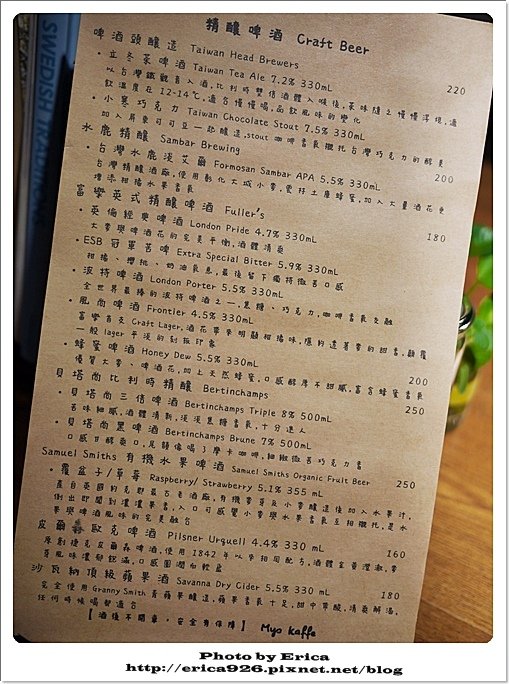 SWEDISH
精釀啤酒 Craft Beer
啤酒頭釀造 Taiwan Head Brewers 220
• 立冬茶啤酒 Taiwan Tea Ale 7.2% 330mL
以台灣鐵觀音入酒,比利時雙倍酒體入喉後,茶味隨之慢慢浮現,適
飲溫度在12-14℃,適合慢慢喝,品飲風味的變化
• 小寒巧克力 Taiwan Chocolate Stout 7.5% 330mL
加入屏東可可豆一起釀造,stout 咖啡香氣襯托台灣巧克力的醇美
水鹿精釀 Sambar Brewing 200
• 台灣水鹿淡艾爾 Formosan Sambar APA 5.5% 330mL
台灣精釀酒廠,使用彰化大城小麥,雲林土庫蜂蜜,加入大量酒花更
增添柑橘水果香氣
富樂英式精釀啤酒 Fuller's 180
• 英倫經典啤酒 London Pride 4.7% 330mL
大麥與啤酒花的完美平衡,酒體清爽
• ESB 冠軍苦啤 Extra Special Bitter 5.9% 330mL
柑橘、櫻桃、奶油氣息,最後留下獨特微苦口感
• 波特啤酒 London Porter 5.5% 330mL
全世界最棒的波特啤酒之一,焦糖、巧克力,咖啡香氣交融
• 風尚啤酒 Frontier 4.5% 330mL
富樂首支 Craft Lager,酒花帶來明顯柑橘味,隱約透著麥的甜香,顛覆
一般 lager 平淡的刻板印象
• 蜂蜜啤酒 Honey Dew 5.5% 330mL 200
優質大麥、啤酒花,加上天然蜂蜜,口感醇厚不甜膩,富含蜂蜜香氣
貝塔尚比利時精釀 Bertinchamps 250
• 貝塔尚三倍啤酒 Bertinchamps Triple 8% 500mL
苦味細膩,酒體清新,淡淡焦糖香氣,十分迷人
• 貝塔尚黑啤酒 Bertinchamps Brune 7% 500mL
口感甘醇爽口,足豬像喝了摩卡咖啡,細緻微苦巧克力香
Samuel Smiths 有機水果啤酒 Samuel Smiths Organic Fruit Beer 250
• 覆盆子/草莓 Raspberry/ Strawberry 5.1% 355 mL
產自英國約克郡最古老酒廠,有機麥芽及小麥釀造後加入水果汁,
倒出即聞到濃濃果香,入口可感覺小麥與水果香氣互相襯托,是水
果與啤酒風味的完美融合
皮爾 歐克啤酒 Pilsner Urquell 4.4% 330 mL 160
原創捷克皮爾森啤酒,使用 1842 年以來相同配方,酒體金黃澄澈,麥
芽風味濃郁飽滿,口感圓潤和輕盈
沙瓦納頂級蘋果酒 Savanna Dry Cider 5.5% 330 mL 180
完全使用 Granny Smith 青蘋果釀造,蘋果香氣十足,甜中帶酸,清爽解渴,
任何時候喝皆適合
【酒後不開車,安全有保障】 Myo Kaffe
Photo by Erica
http://erica926.pixnet.net/blog